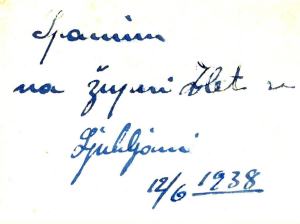 Spomin
na župni zlet v
Ljubljani
12/6 1938